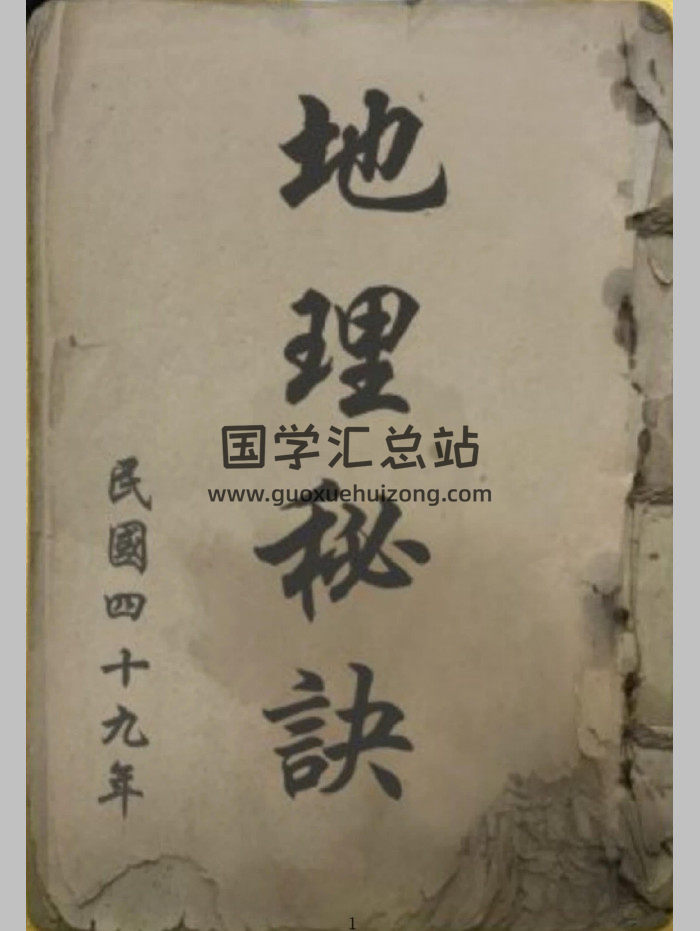 地理秘訣
民國四十九年
国学汇总站
www.guoxuehuizong.com
1